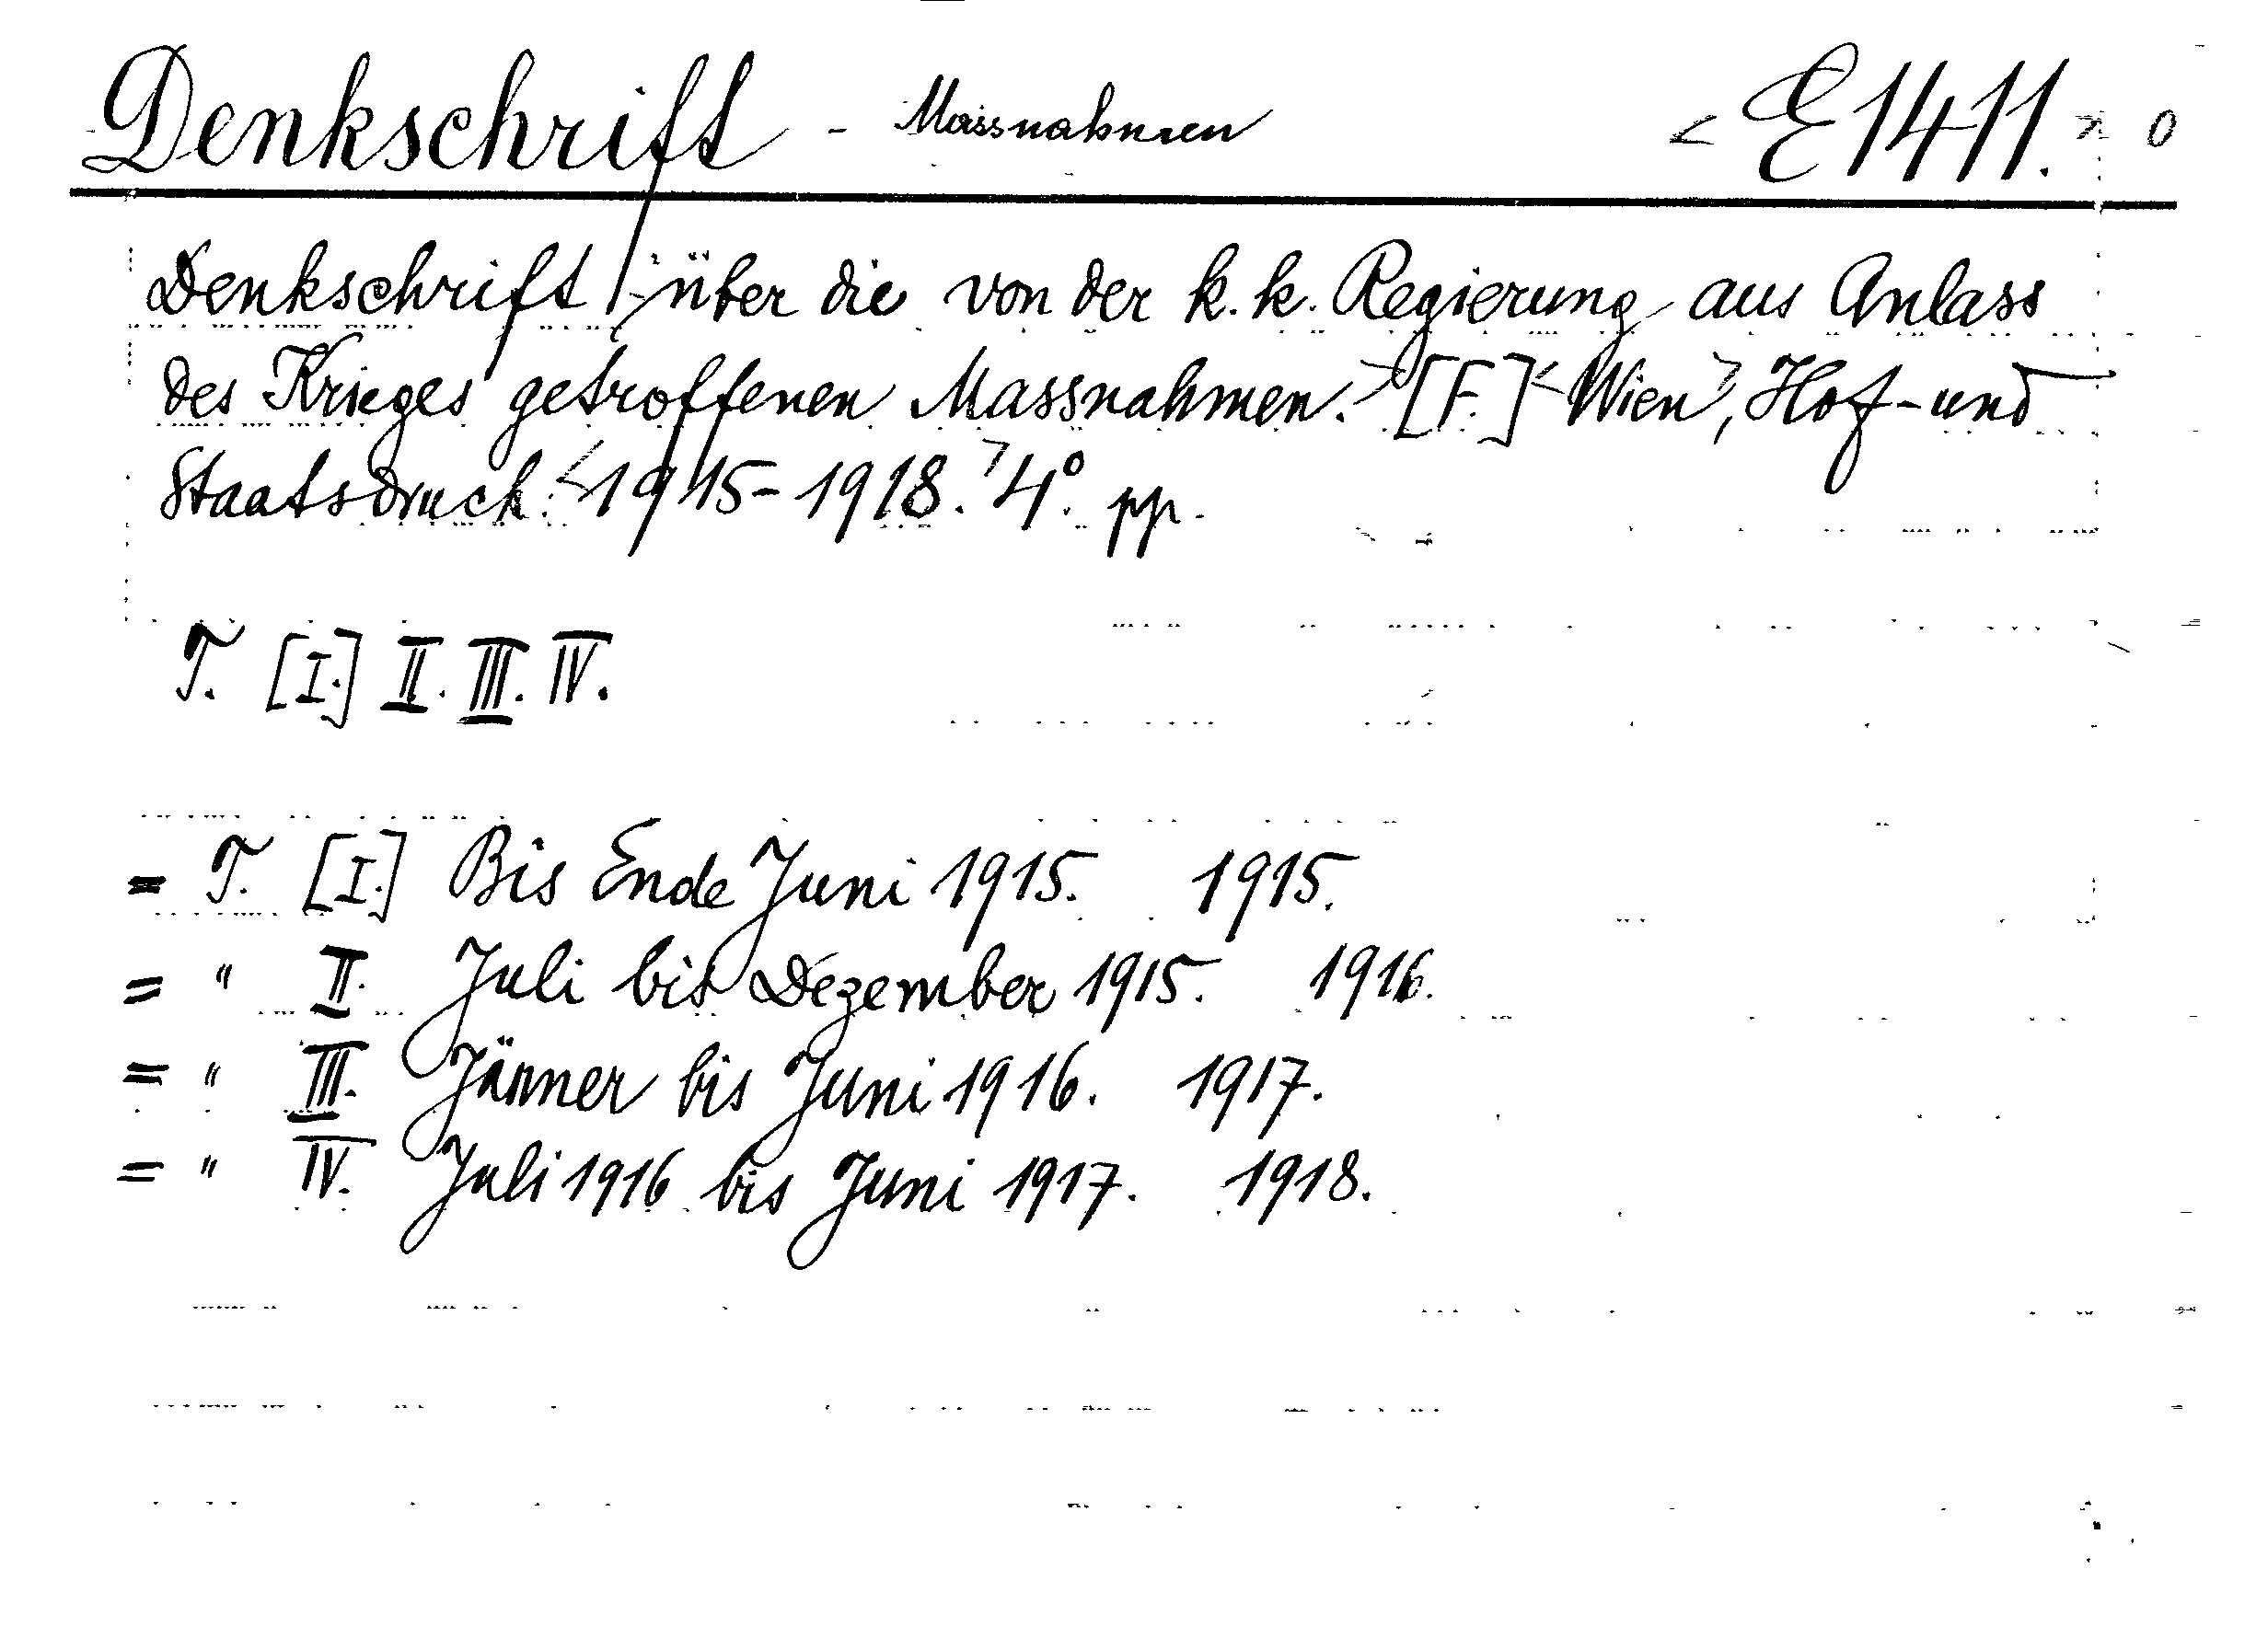 Denkschrift - Massnahmen < E1411. > 0
Denkschrift über die von der k. k. Regierung aus Anlass
des Krieges getroffenen Massnahmen. > [F.] < Wien >, Hof- und
Staatsdruck. < 1915-1918. > 4°. pp.
T. [I.] II. III. IV.
= T. [I.] Bis Ende Juni 1915. 1915.
= " II. Juli bis Dezember 1915. 1916.
= " III. Jänner bis Juni 1916. 1917.
= " IV. Juli 1916 bis Juni 1917. 1918.